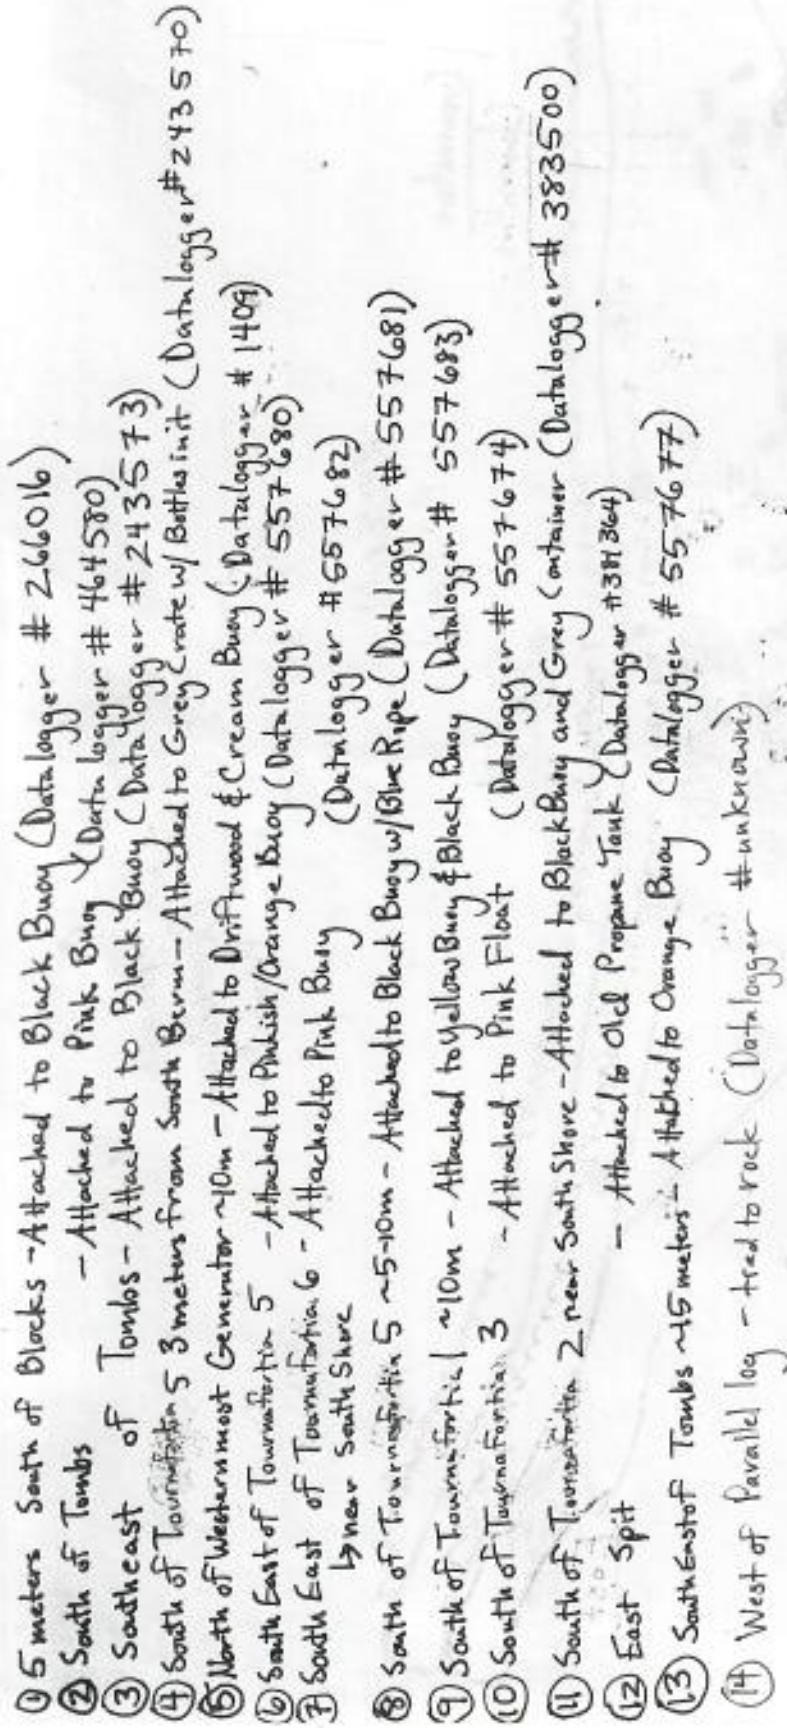 ① 5 meters South of Blocks - Attached to Black Buoy (Datalogger # 266016)
② South of Tombs - Attached to Pink Buoy (Datalogger # 464580)
③ Southeast of Tombs - Attached to Black Buoy (Datalogger # 243573)
④ South of Tournefortia 5 3 meters from South Berm - Attached to Grey Crate w/ Bottles in it (Datalogger # 243570)
⑤ North of Westernmost Generator ~10m - Attached to Driftwood & Cream Buoy (Datalogger # 1409)
⑥ South East of Tournefortia 5 - Attached to Pinkish/Orange Buoy (Datalogger # 557680)
⑦ South East of Tournefortia 6 - Attached to Pink Buoy (Datalogger # 557682)
↳ near South Shore
⑧ South of Tournefortia 5 ~5-10m - Attached to Black Buoy w/ Blue Rope (Datalogger # 557681)
⑨ South of Tournefortia 1 ~10m - Attached to Yellow Buoy & Black Buoy (Datalogger # 557683)
⑩ South of Tournefortia 3 - Attached to Pink Float (Datalogger # 557674)
⑪ South of Tournefortia 2 near South Shore - Attached to Black Buoy and Grey Container (Datalogger # 383500)
⑫ East Spit - Attached to Old Propane Tank (Datalogger # 381364)
⑬ South East of Tombs ~15 meters - Attached to Orange Buoy (Datalogger # 557677)
⑭ West of Parallel log - tied to rock (Datalogger # unknown)